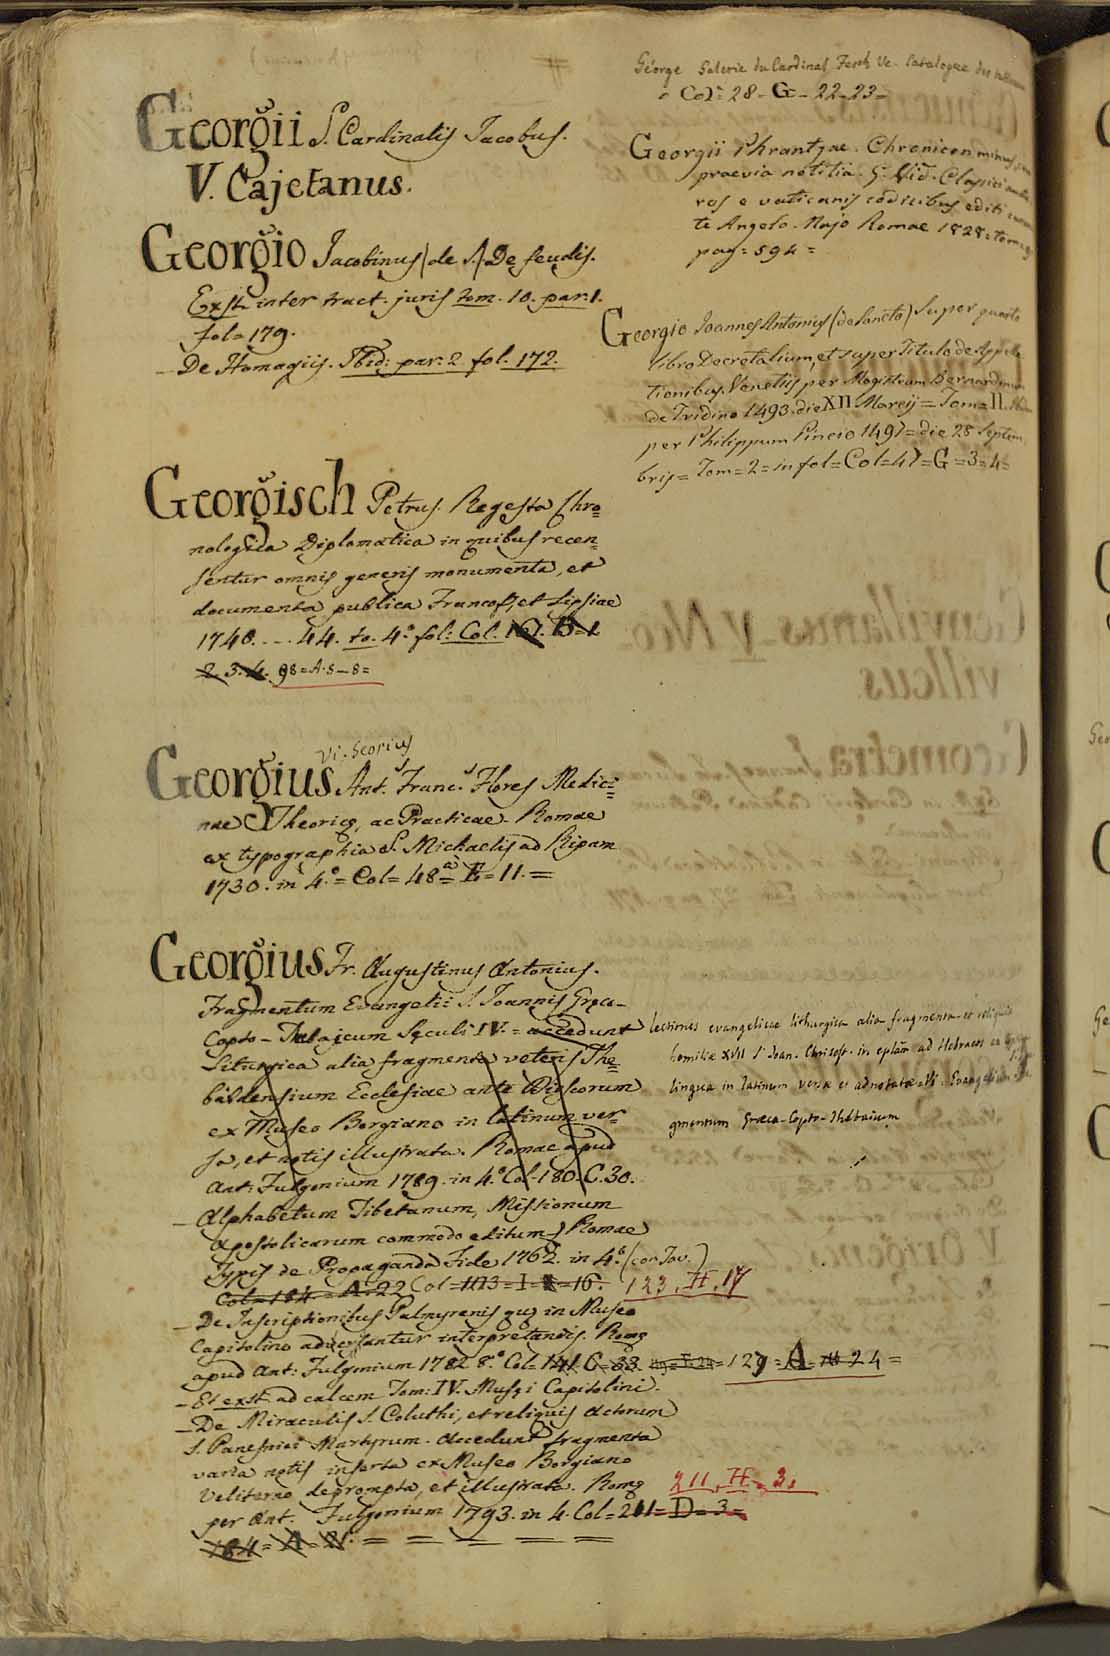 Georgii S. Cardinalis Jacobus.
V. Cajetanus.
Georgio Jacobinus (de S.) De feudis.
Exst. inter tract. juris tom. 10. par. 1.
fol. 179.
– De Homagiis. Ibid: par: 2 fol. 172.
Georgisch Petrus. Regesta Chro=
nologica Diplomatica in quibus recen=
sentur omnis generis monumenta, et
documenta publica Francof, et Lipsiae
1740. . . 44. to. 4° fol: Col. 161. B=1.
2. 3. 4. 98=A.5–8=
Vi. Scorius
Georgius Ant.s Franc.s Flores Medici=
nae Theoricę, ac Practicae. Romae
ex typographia S. Michaelis ad Ripam
1730. in 4.° = Col = 48 a = E = 11. =
Georgius Fr. Augustinus Antonius.
Fragmentum Evangelii S. Joannis Gręco-
Copto-Thebaicum Sęculi IV. = accedunt
Liturgica alia fragmenta veteris The=
baidensium Ecclesiae ante Dioscorum
ex Museo Borgiano in latinum ver=
sa, et notis illustrata. Romae apud
Ant: Fulgonium 1789. in 4.° Col-180. C. 30.
– Alphabetum Tibetanum, Missionum
apostolicarum commodo editum) Romae
typis de Propaganda Fide 1762. in 4.° (con Tav.)
Col=184=A=22 Col=113=I=16. 123. H. 17
– De Inscriptionibus Palmyrenis quę in Museo
Capitolino adservantur interpretandis. Romę
apud Ant: Fulgonium 1782. 8.° Col=141. C=33. =129=A=24=
– Et exst. ad calcem Tom: IV. Musęi Capitolini.
– De Miraculis S. Coluthi, et reliquis Actorum
S. Panesniei Martyrum. Accedunt fragmenta
varia notis inserta ex Museo Borgiano
Veliterno deprompta, et illustrata. Romę 211. H. 3.
per Ant. Fulgonium 1793. in 4. Col=211=D=3=
184=A=21. = = = = =
George Galerie du Cardinal Fesch Ve. Catalogue des
Col: 28 - G - 22-23-
Georgii Phrantzae. Chronicon minus
praevia notitia. S. Vid. Classici aucto
res e vaticanis codicibus editi curan
te Angelo Majo Romae 1828=tom=9
pag=594=
Georgio Joannes Antonius (de Sancto) Super quarto
libro Decretalium, et super Titulo de Appella
tionibus. Venetiis per Magistrum Bernardinum
de Tridino 1493. die XII Marcij = Tom = II.
per Philippum Pincio 1497= die 28 Septem
bris = Tom = 2 = in fol = Col = 47 = G = 3 = 4 =
lectiones evangelicae lithurgica alia fragmenta et reliquis
homiliae XVII S. Joan. Chrisost. in eptam ad Hebraeos ex
lingua in latinum versa et adnotata. Vi. Evangelium
gmentum Graeco-Copto-Thebaicum